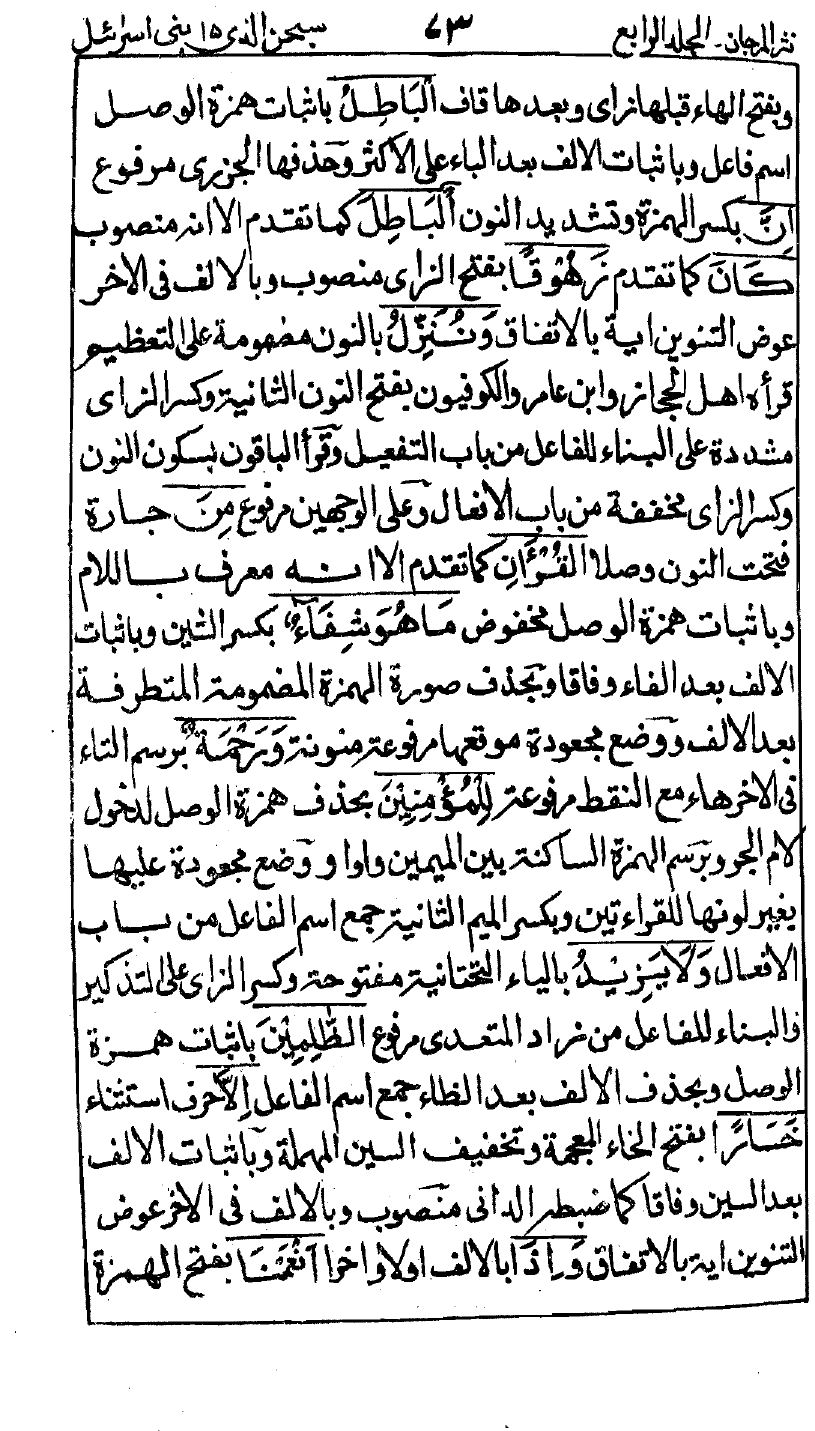 نثر المرجان - المجلد الرابع ٧٣ سبحن الذى ١٥ بنى اسرائيل
وبفتح الهاء قبلها زاى وبعدها قاف الْبَاطِلُ باثبات همزة الوصل
اسم فاعل وباثبات الالف بعد الباء على الاكثر وحذفها الجزرى مرفوع
اِنَّ بكسر الهمزة وتشديد النون الْبَاطِلَ كما تقدم الا انه منصوب
كَانَ كما تقدم زَهُوْقًا بفتح الزاى منصوب وبالالف فى الاخر
عوض التنوين اية بالاتفاق وَنُنَزِّلُ بالنون مضمومة على التعظيم
قرأه اهل الحجاز وابن عامر والكوفيون بفتح النون الثانية وكسر الزاى
مشددة على البناء للفاعل من باب التفعيل وقرأ الباقون بسكون النون
وكسر الزاى مخففة من باب الافعال وعلى الوجهين مرفوع مِنَ جارة
فتحت النون وصلا الْقُرْءَانِ كما تقدم الا انه معرف باللام
وباثبات همزة الوصل مخفوض مَا هُوَ شِفَاءٌ بكسر الشين وباثبات
الالف بعد الفاء وفاقا وبحذف صورة الهمزة المضمومة المتطرفة
بعد الالف ووضع مجعودة موقعها مرفوعة منونة وَرَحْمَةٌ برسم التاء
فى الاخر هاء مع النقط مرفوعة لِلْمُؤْمِنِيْنَ بحذف همزة الوصل لدخول
لام الجر وبرسم الهمزة الساكنة بين الميمين واوا ووضع مجعودة عليها
بغير لونها للقراءتين وبكسر الميم الثانية جمع اسم الفاعل من باب
الافعال وَلَا يَزِيْدُ بالياء التحتانية مفتوحة وكسر الزاى على التذكير
والبناء للفاعل من زاد المتعدى مرفوع الظّٰلِمِيْنَ باثبات همزة
الوصل وبحذف الالف بعد الظاء جمع اسم الفاعل اِلَّا حرف استثناء
خَسَارًا بفتح الخاء المعجمة وتخفيف السين المهملة وباثبات الالف
بعد السين وفاقا كما ضبطه الدانى منصوب وبالالف فى الاخر عوض
التنوين اية بالاتفاق وَاِذَا بالالف اولا واخرا اَنْعَمْنَا بفتح الهمزة